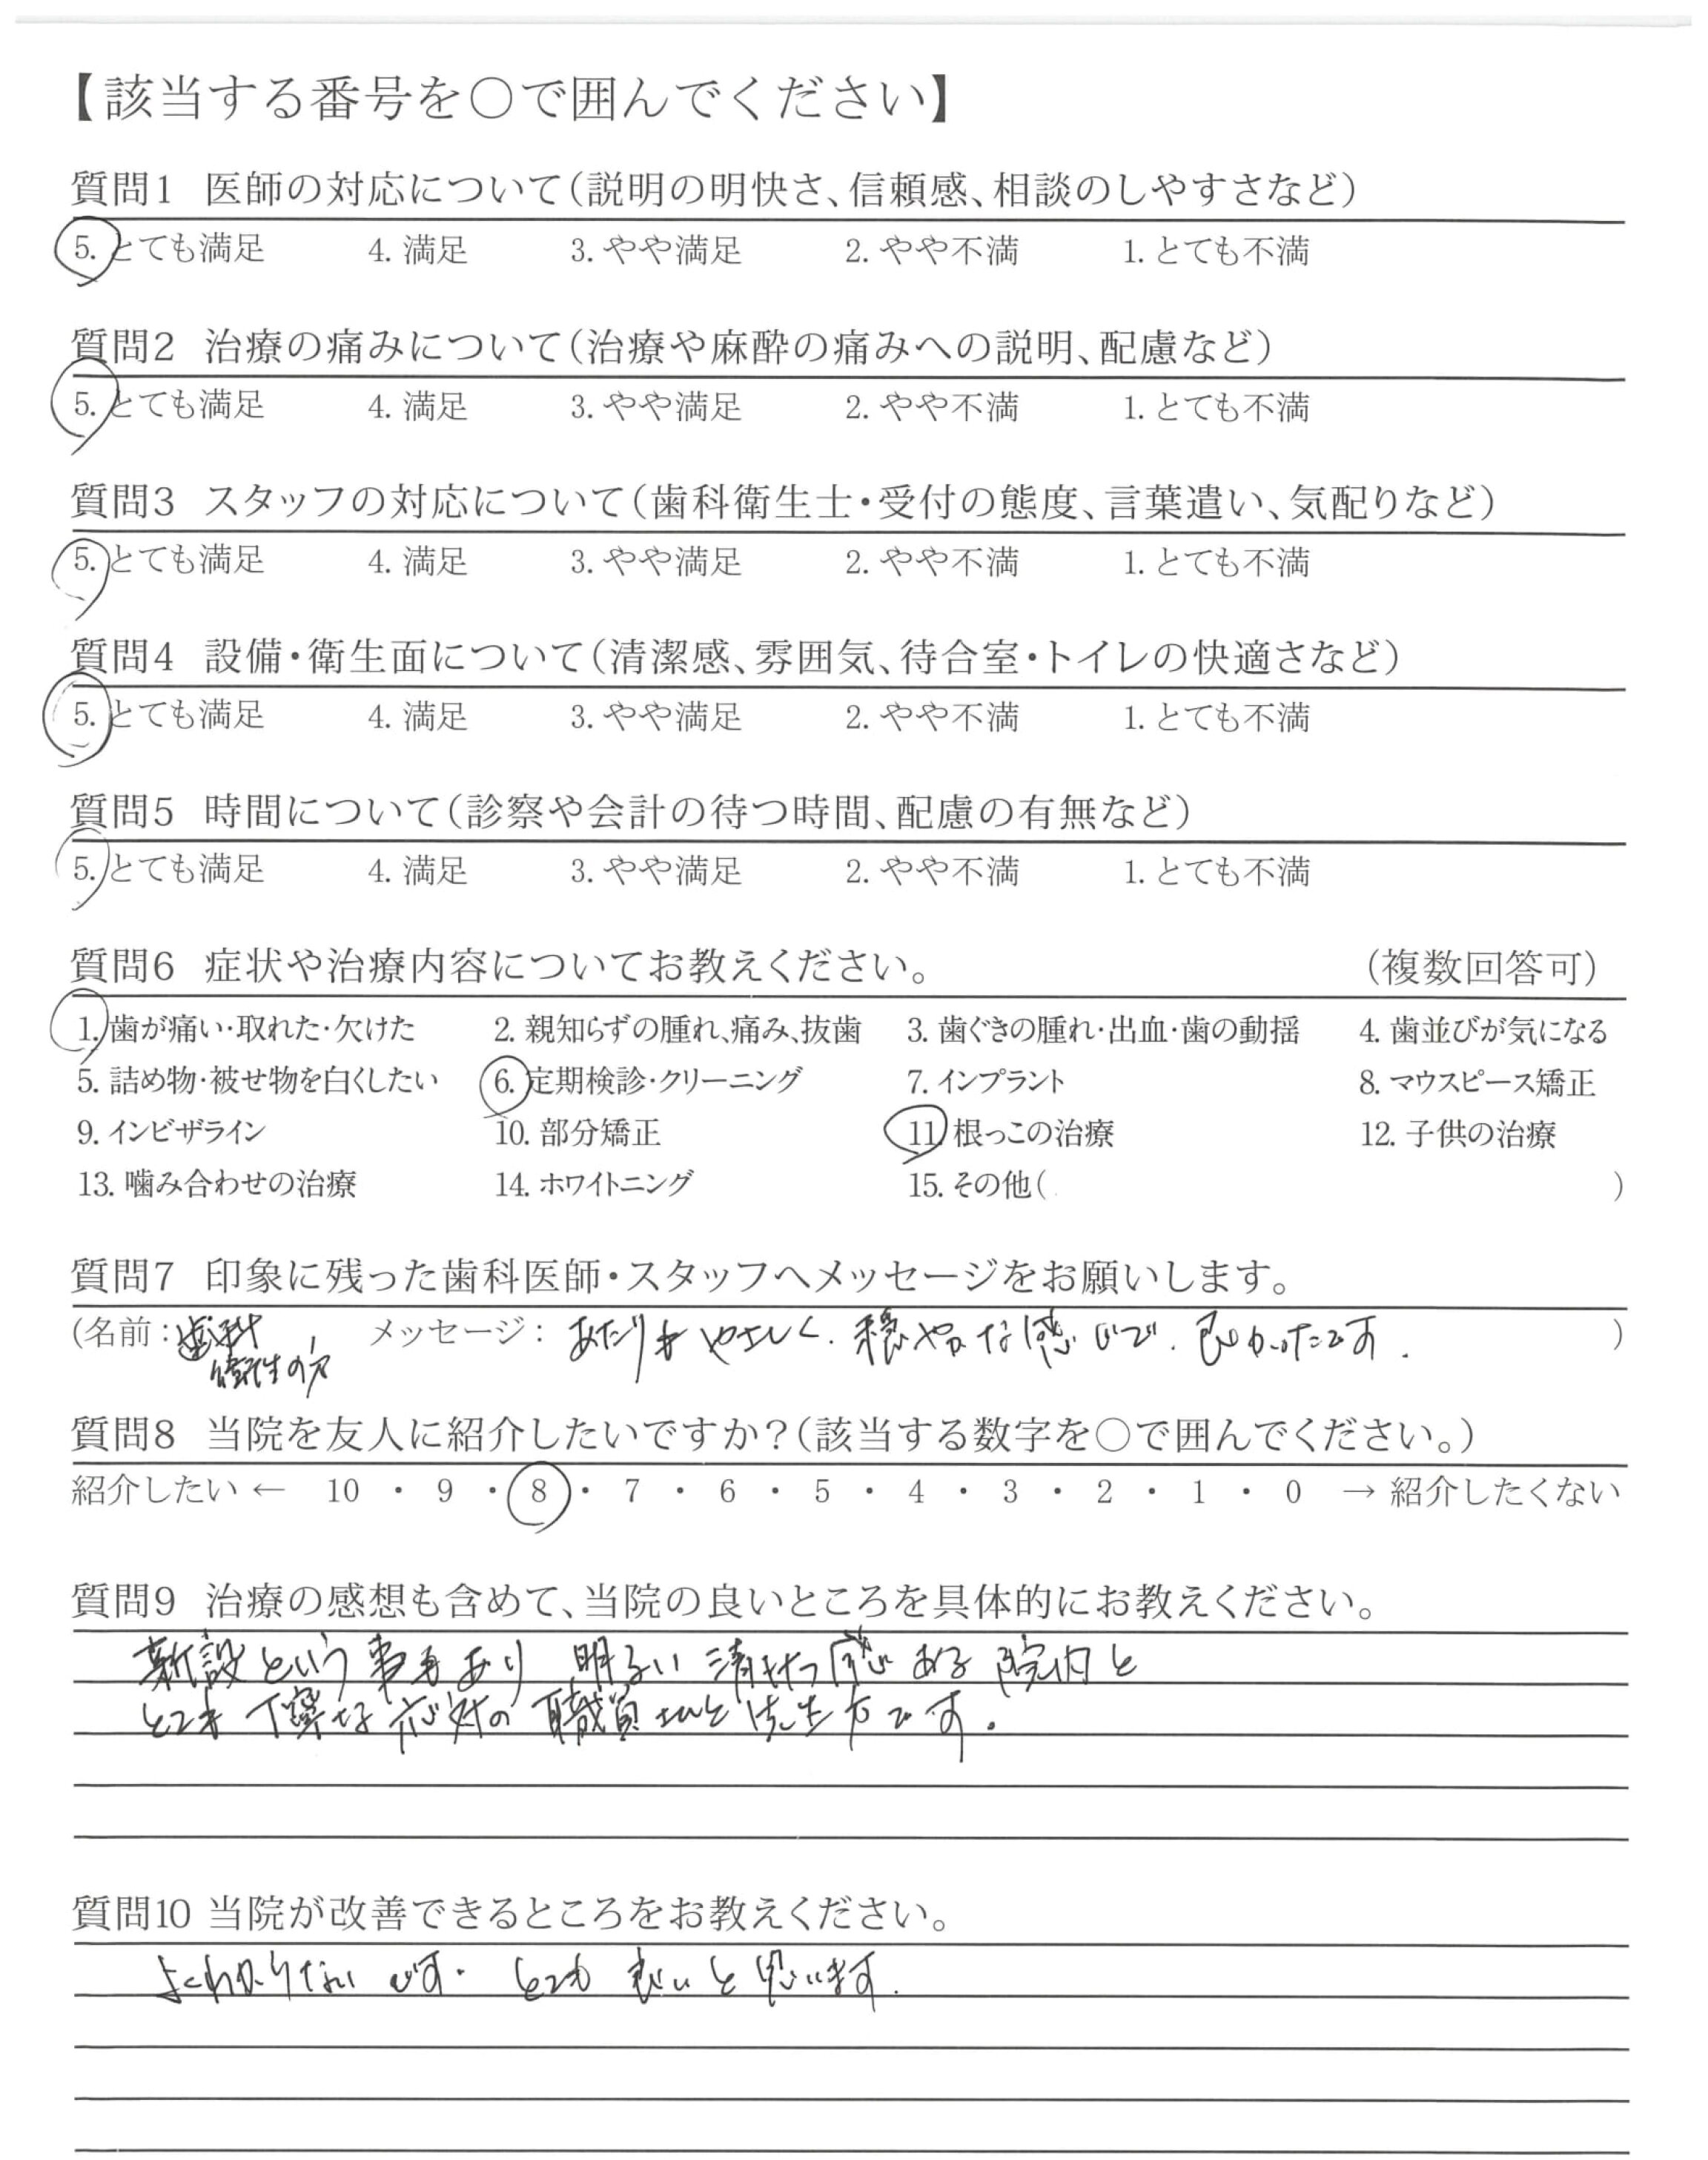 【該当する番号を○で囲んでください】
質問1 医師の対応について(説明の明快さ、信頼感、相談のしやすさなど)
5. とても満足 4. 満足 3. やや満足 2. やや不満 1. とても不満
質問2 治療の痛みについて(治療や麻酔の痛みへの説明、配慮など)
5. とても満足 4. 満足 3. やや満足 2. やや不満 1. とても不満
質問3 スタッフの対応について(歯科衛生士・受付の態度、言葉遣い、気配りなど)
5. とても満足 4. 満足 3. やや満足 2. やや不満 1. とても不満
質問4 設備・衛生面について(清潔感、雰囲気、待合室・トイレの快適さなど)
5. とても満足 4. 満足 3. やや満足 2. やや不満 1. とても不満
質問5 時間について(診察や会計の待つ時間、配慮の有無など)
5. とても満足 4. 満足 3. やや満足 2. やや不満 1. とても不満
質問6 症状や治療内容についてお教えください。 (複数回答可)
1. 歯が痛い・取れた・欠けた 2. 親知らずの腫れ、痛み、抜歯 3. 歯ぐきの腫れ・出血・歯の動揺 4. 歯並びが気になる
5. 詰め物・被せ物を白くしたい 6. 定期検診・クリーニング 7. インプラント 8. マウスピース矯正
9. インビザライン 10. 部分矯正 11. 根っこの治療 12. 子供の治療
13. 噛み合わせの治療 14. ホワイトニング 15. その他( )
質問7 印象に残った歯科医師・スタッフへメッセージをお願いします。
(名前:歯科 メッセージ: あたりもやさしく、穏やかな感じで、良かったです. )
衛生の方
質問8 当院を友人に紹介したいですか?(該当する数字を○で囲んでください。)
紹介したい ← 10 ・ 9 ・ 8 ・ 7 ・ 6 ・ 5 ・ 4 ・ 3 ・ 2 ・ 1 ・ 0 → 紹介したくない
質問9 治療の感想も含めて、当院の良いところを具体的にお教えください。
新設という事もあり 明るい 清けつ感ある 院内と
とても 丁寧な 応対の 職員さんと 先生方です。
質問10 当院が改善できるところをお教えください。
よくわからないです. とても 良いと 思います.